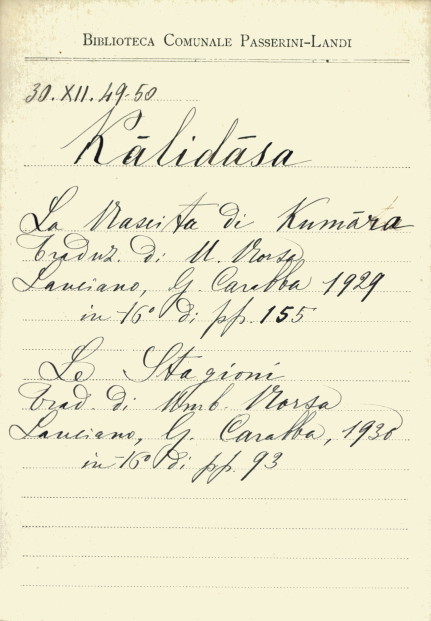 BIBLIOTECA COMUNALE PASSERINI-LANDI
30.XII.49-50
Kālidāsa
La Nascita di Kumāra
Traduz. di U. Norsa
Lanciano, G. Carabba 1929
in-16° di pp. 155
Le Stagioni
Trad. di Umb. Norsa
Lanciano, G. Carabba, 1930
in-16° di pp. 93